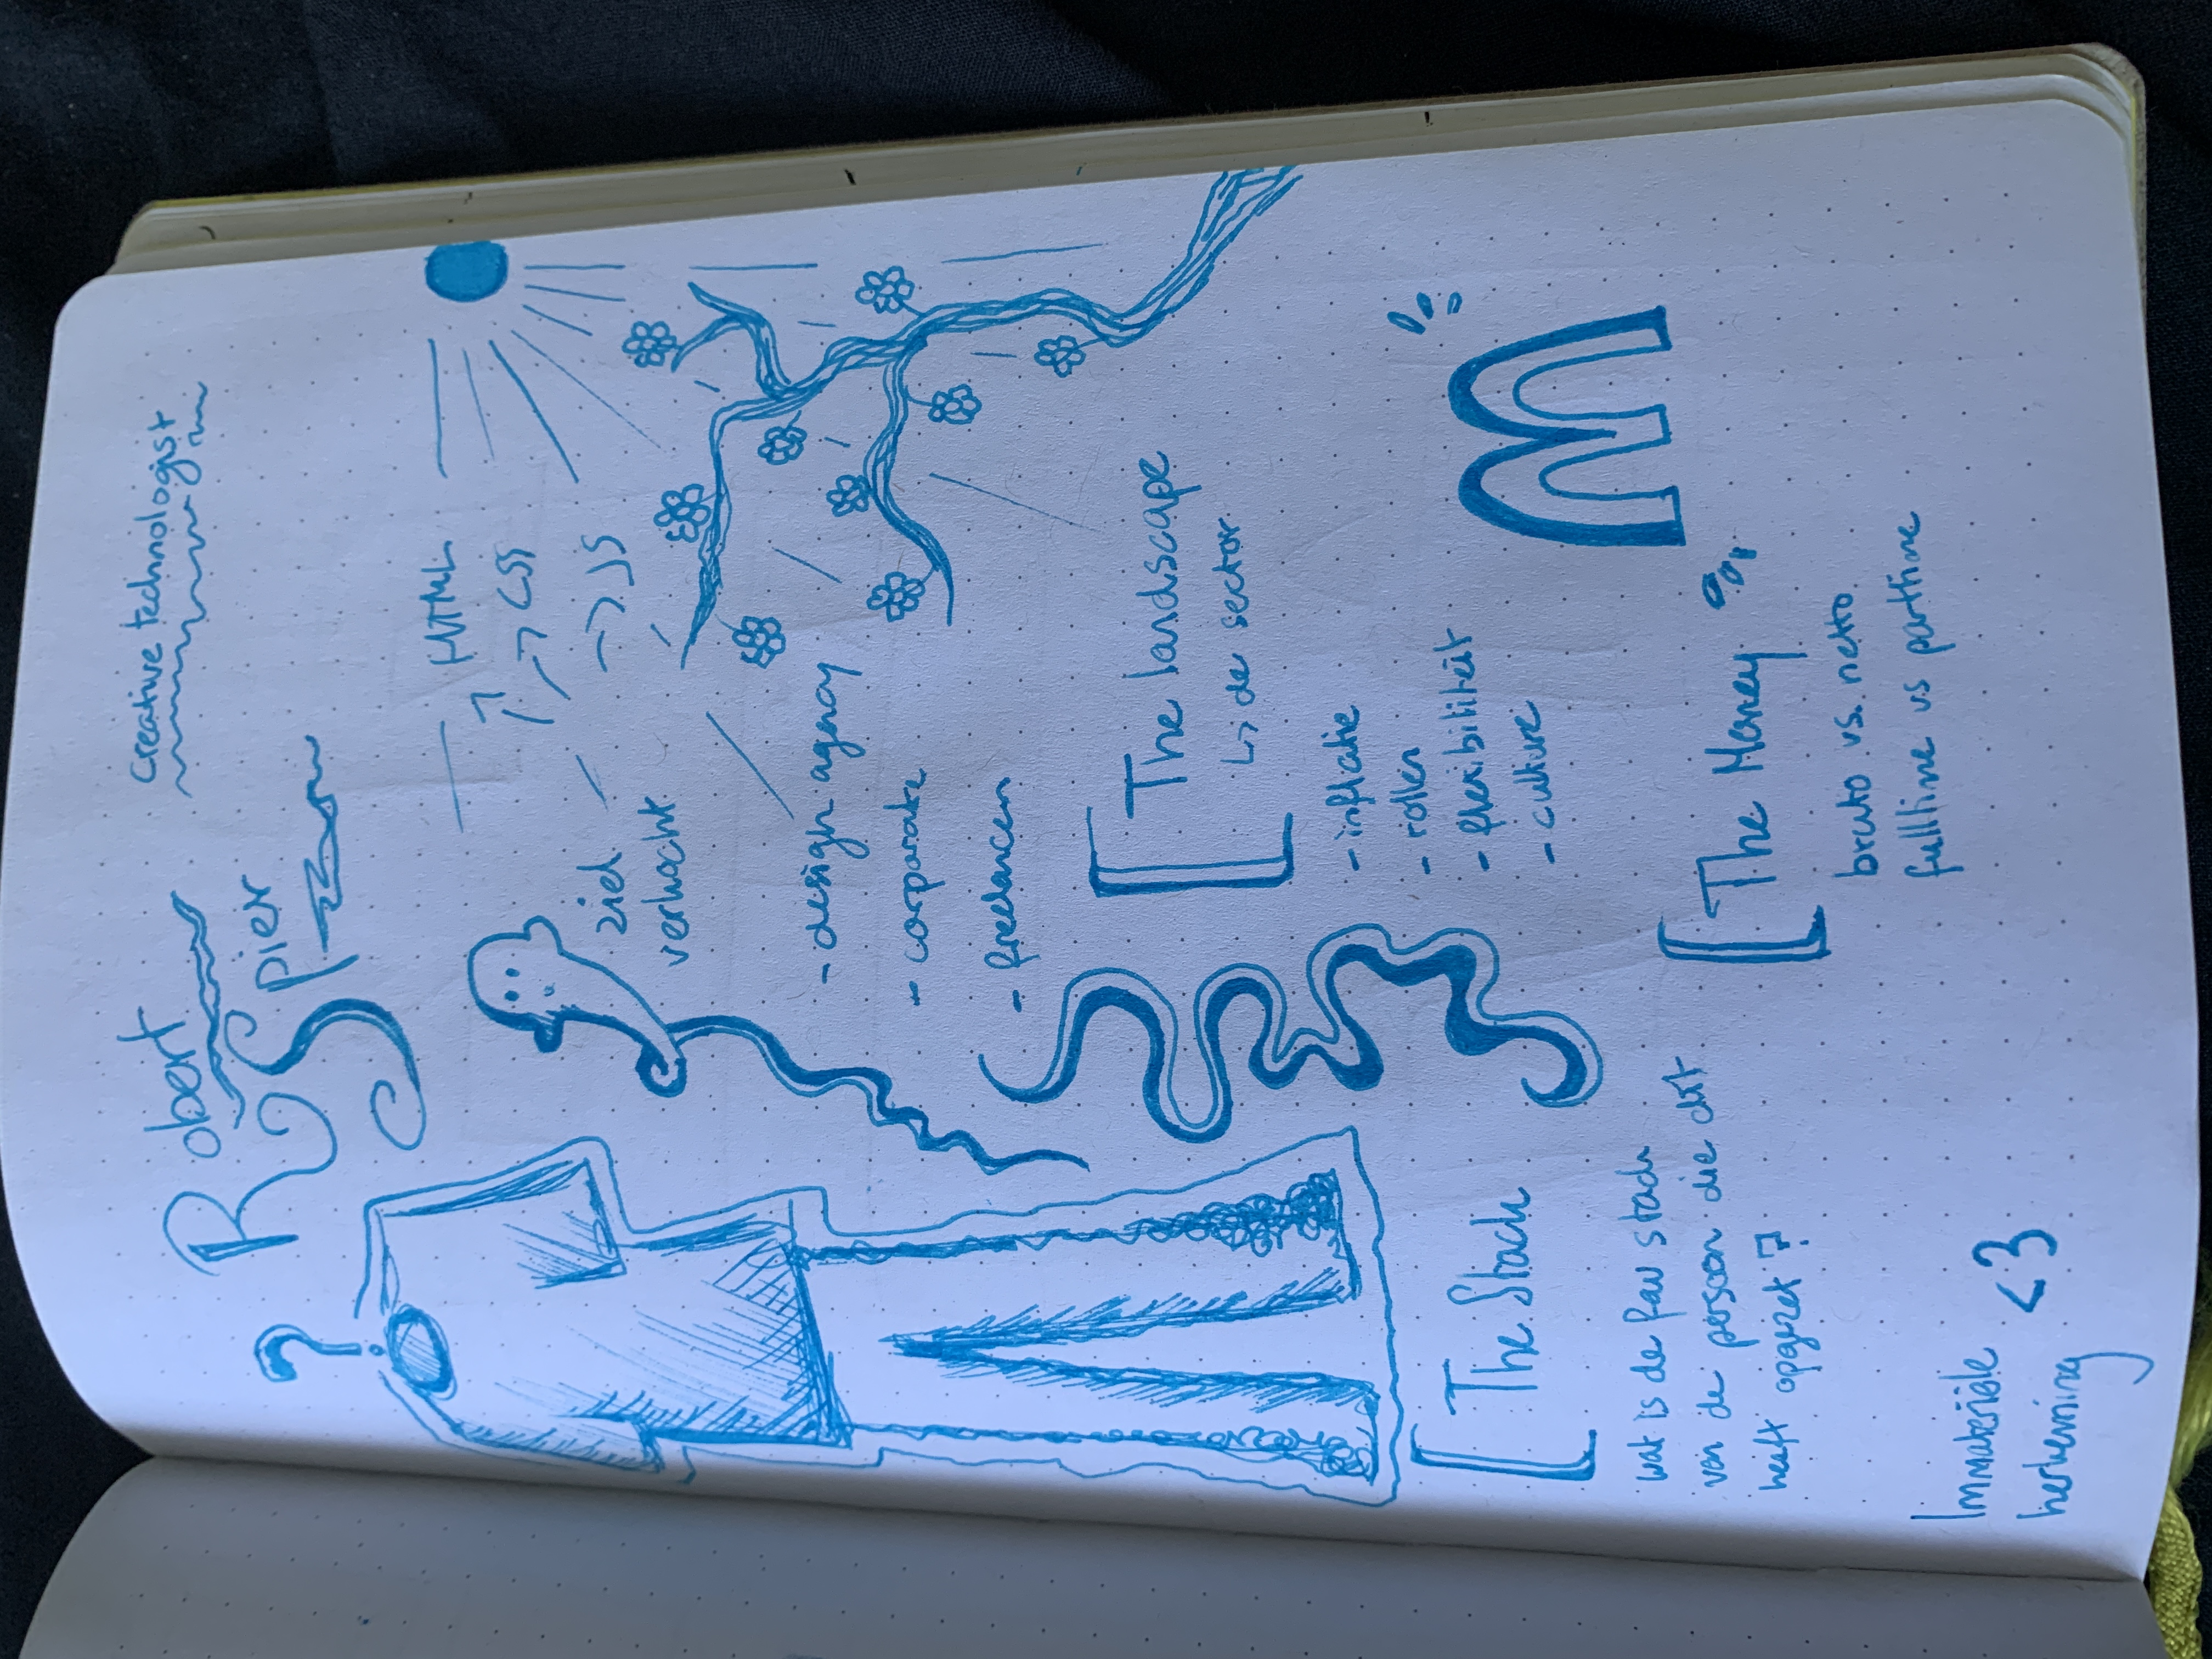 Robert
Spier
creative technologist
?
HTML
CSS
JS
ziel
verkocht
- design agency
- corporate
- freelancen
[ The landscape
↳ de sector
- inflatie
- rollen
- flexibiliteit
- culture
[ The Stack
wat is de fav stack
van de persoon die dit
heeft opgezet ?
M
[ The Money
bruto vs. netto
fulltime vs parttime
Immateriële
herkenning
<3